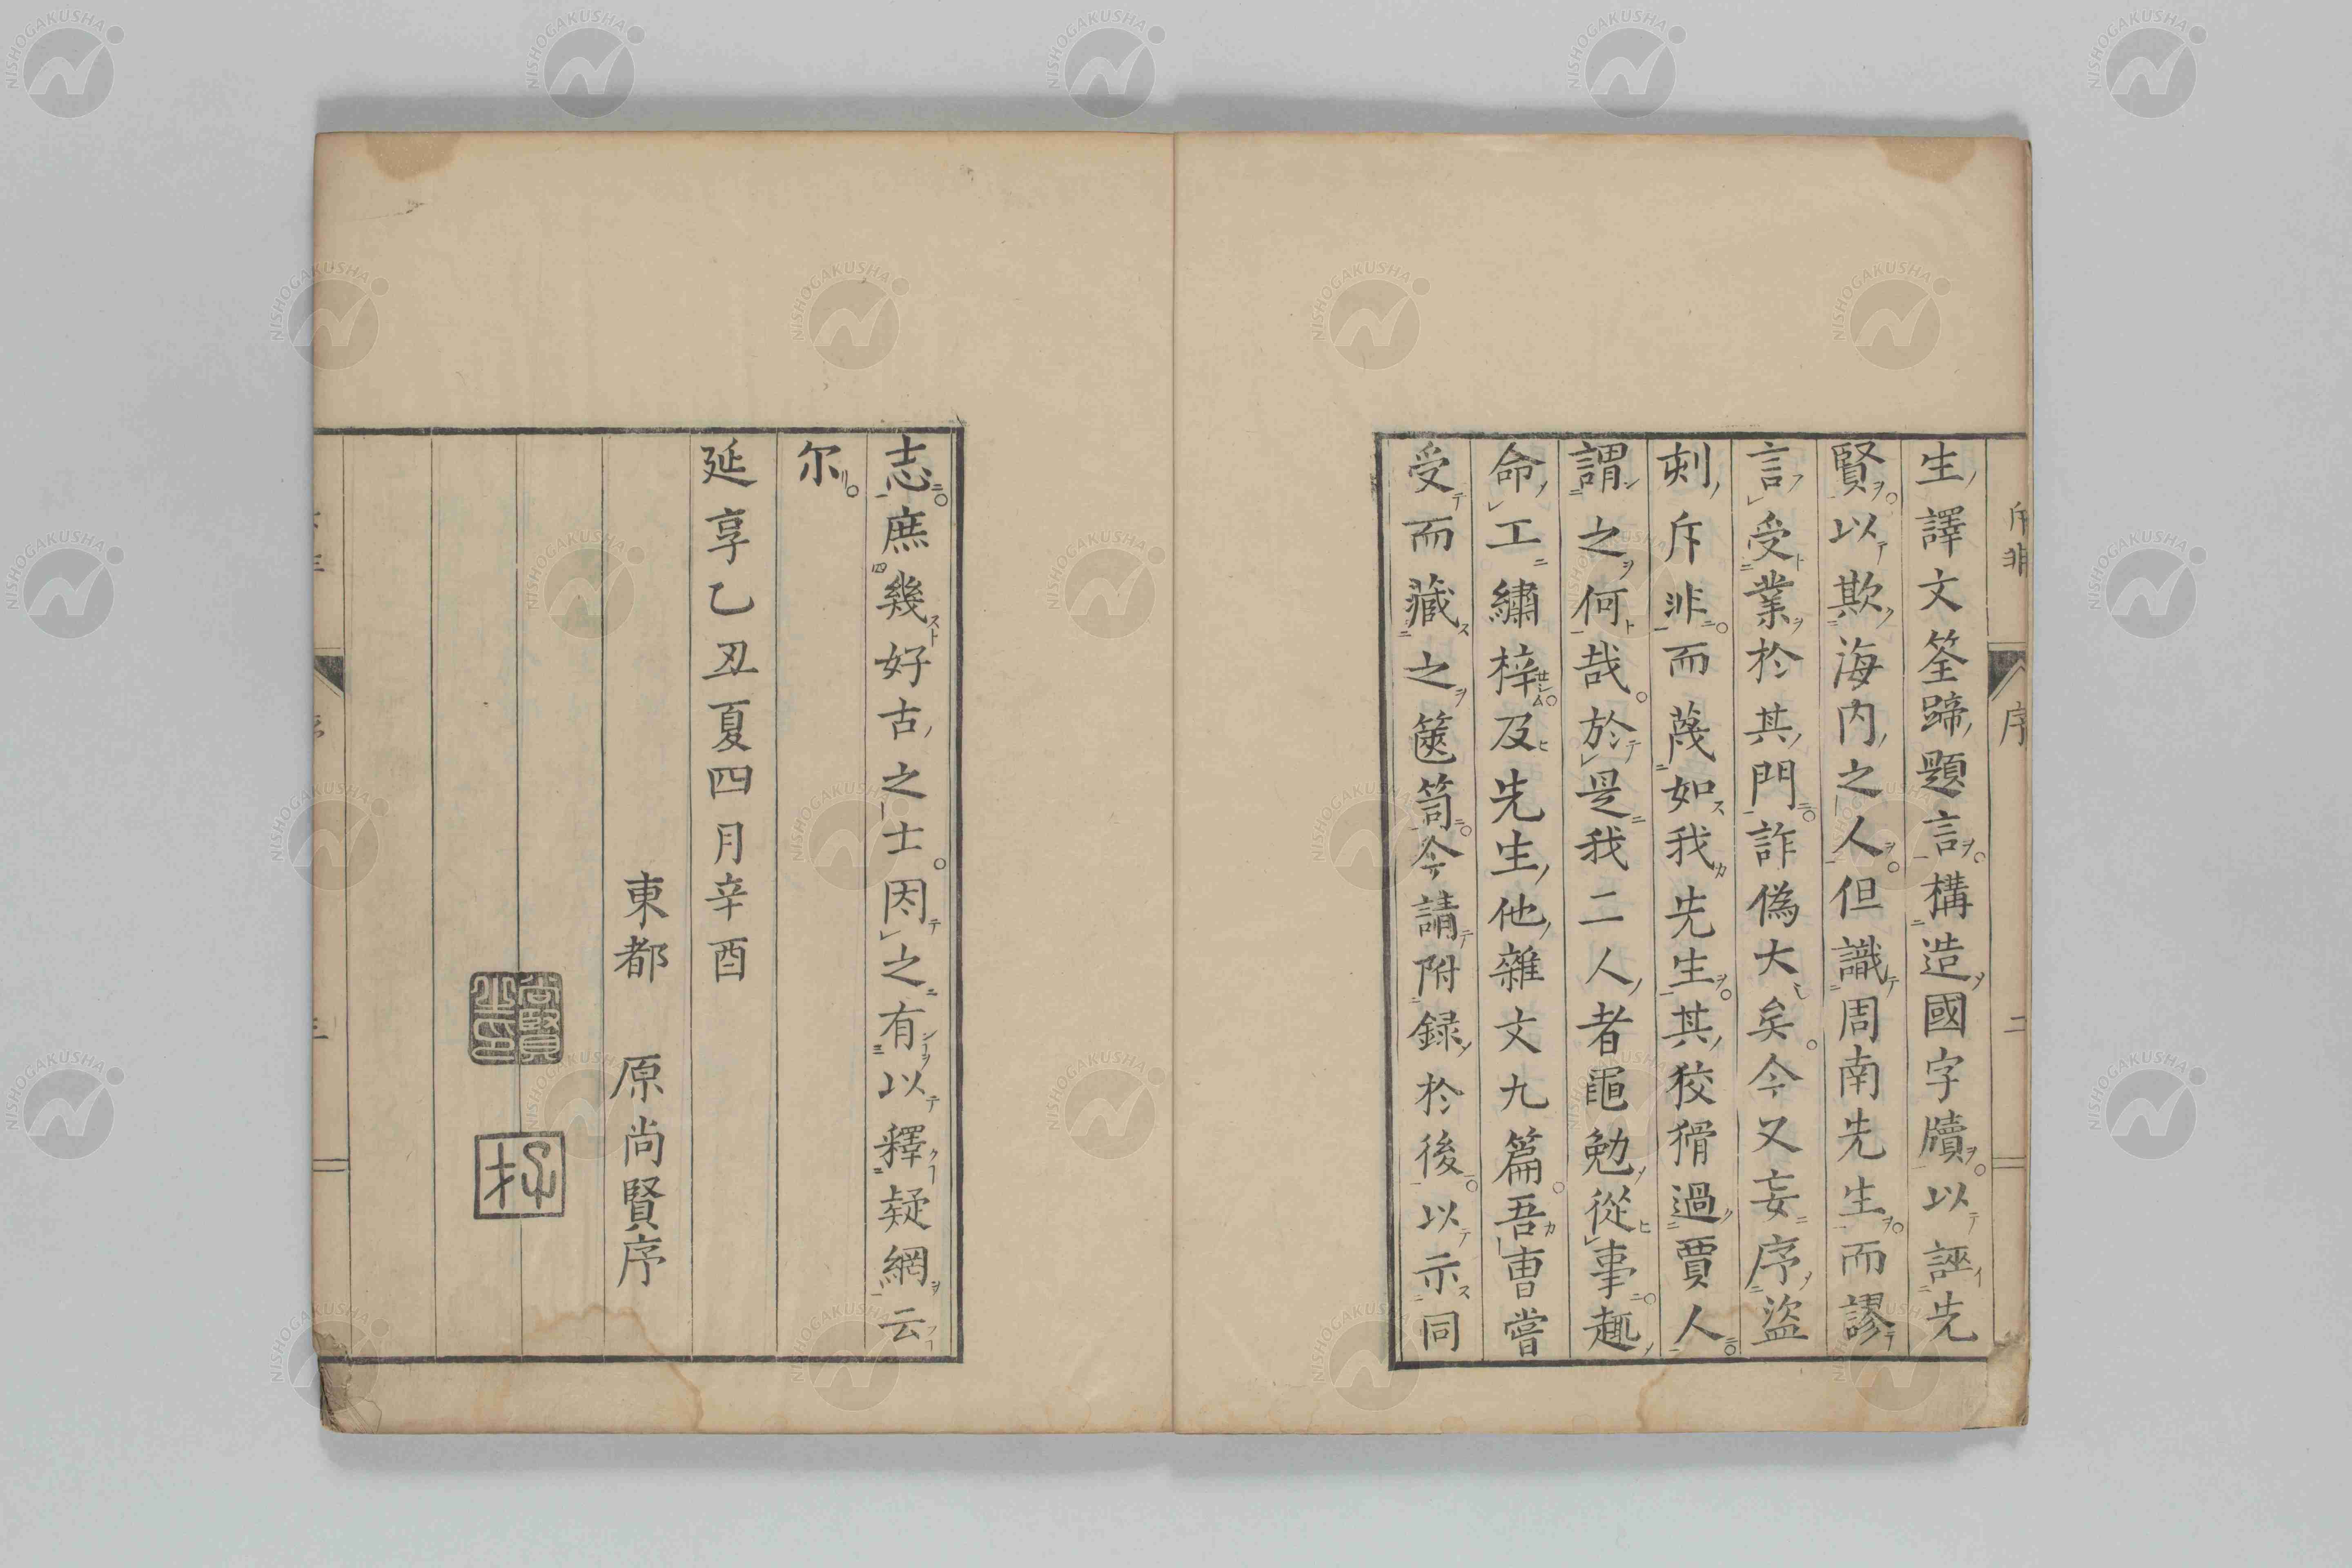 斥非
序
二
生譯文筌蹄題言構造國字牘以誣先
賢以欺海內之人但識周南先生而謬
言受業於其門詐偽大矣今又妄序盜
刻斥非而蔑如我先生其狡猾過賈人
謂之何哉於是我二人者黽勉從事趣
命工繡梓及先生他雜文九篇吾曹嘗
受而藏之篋笥今請附錄於後以示同
志庶幾好古之士因之有以釋疑網云
尔
延享乙丑夏四月辛酉
東都 原尚賢序
尚賢
NISHOGAKUSHA